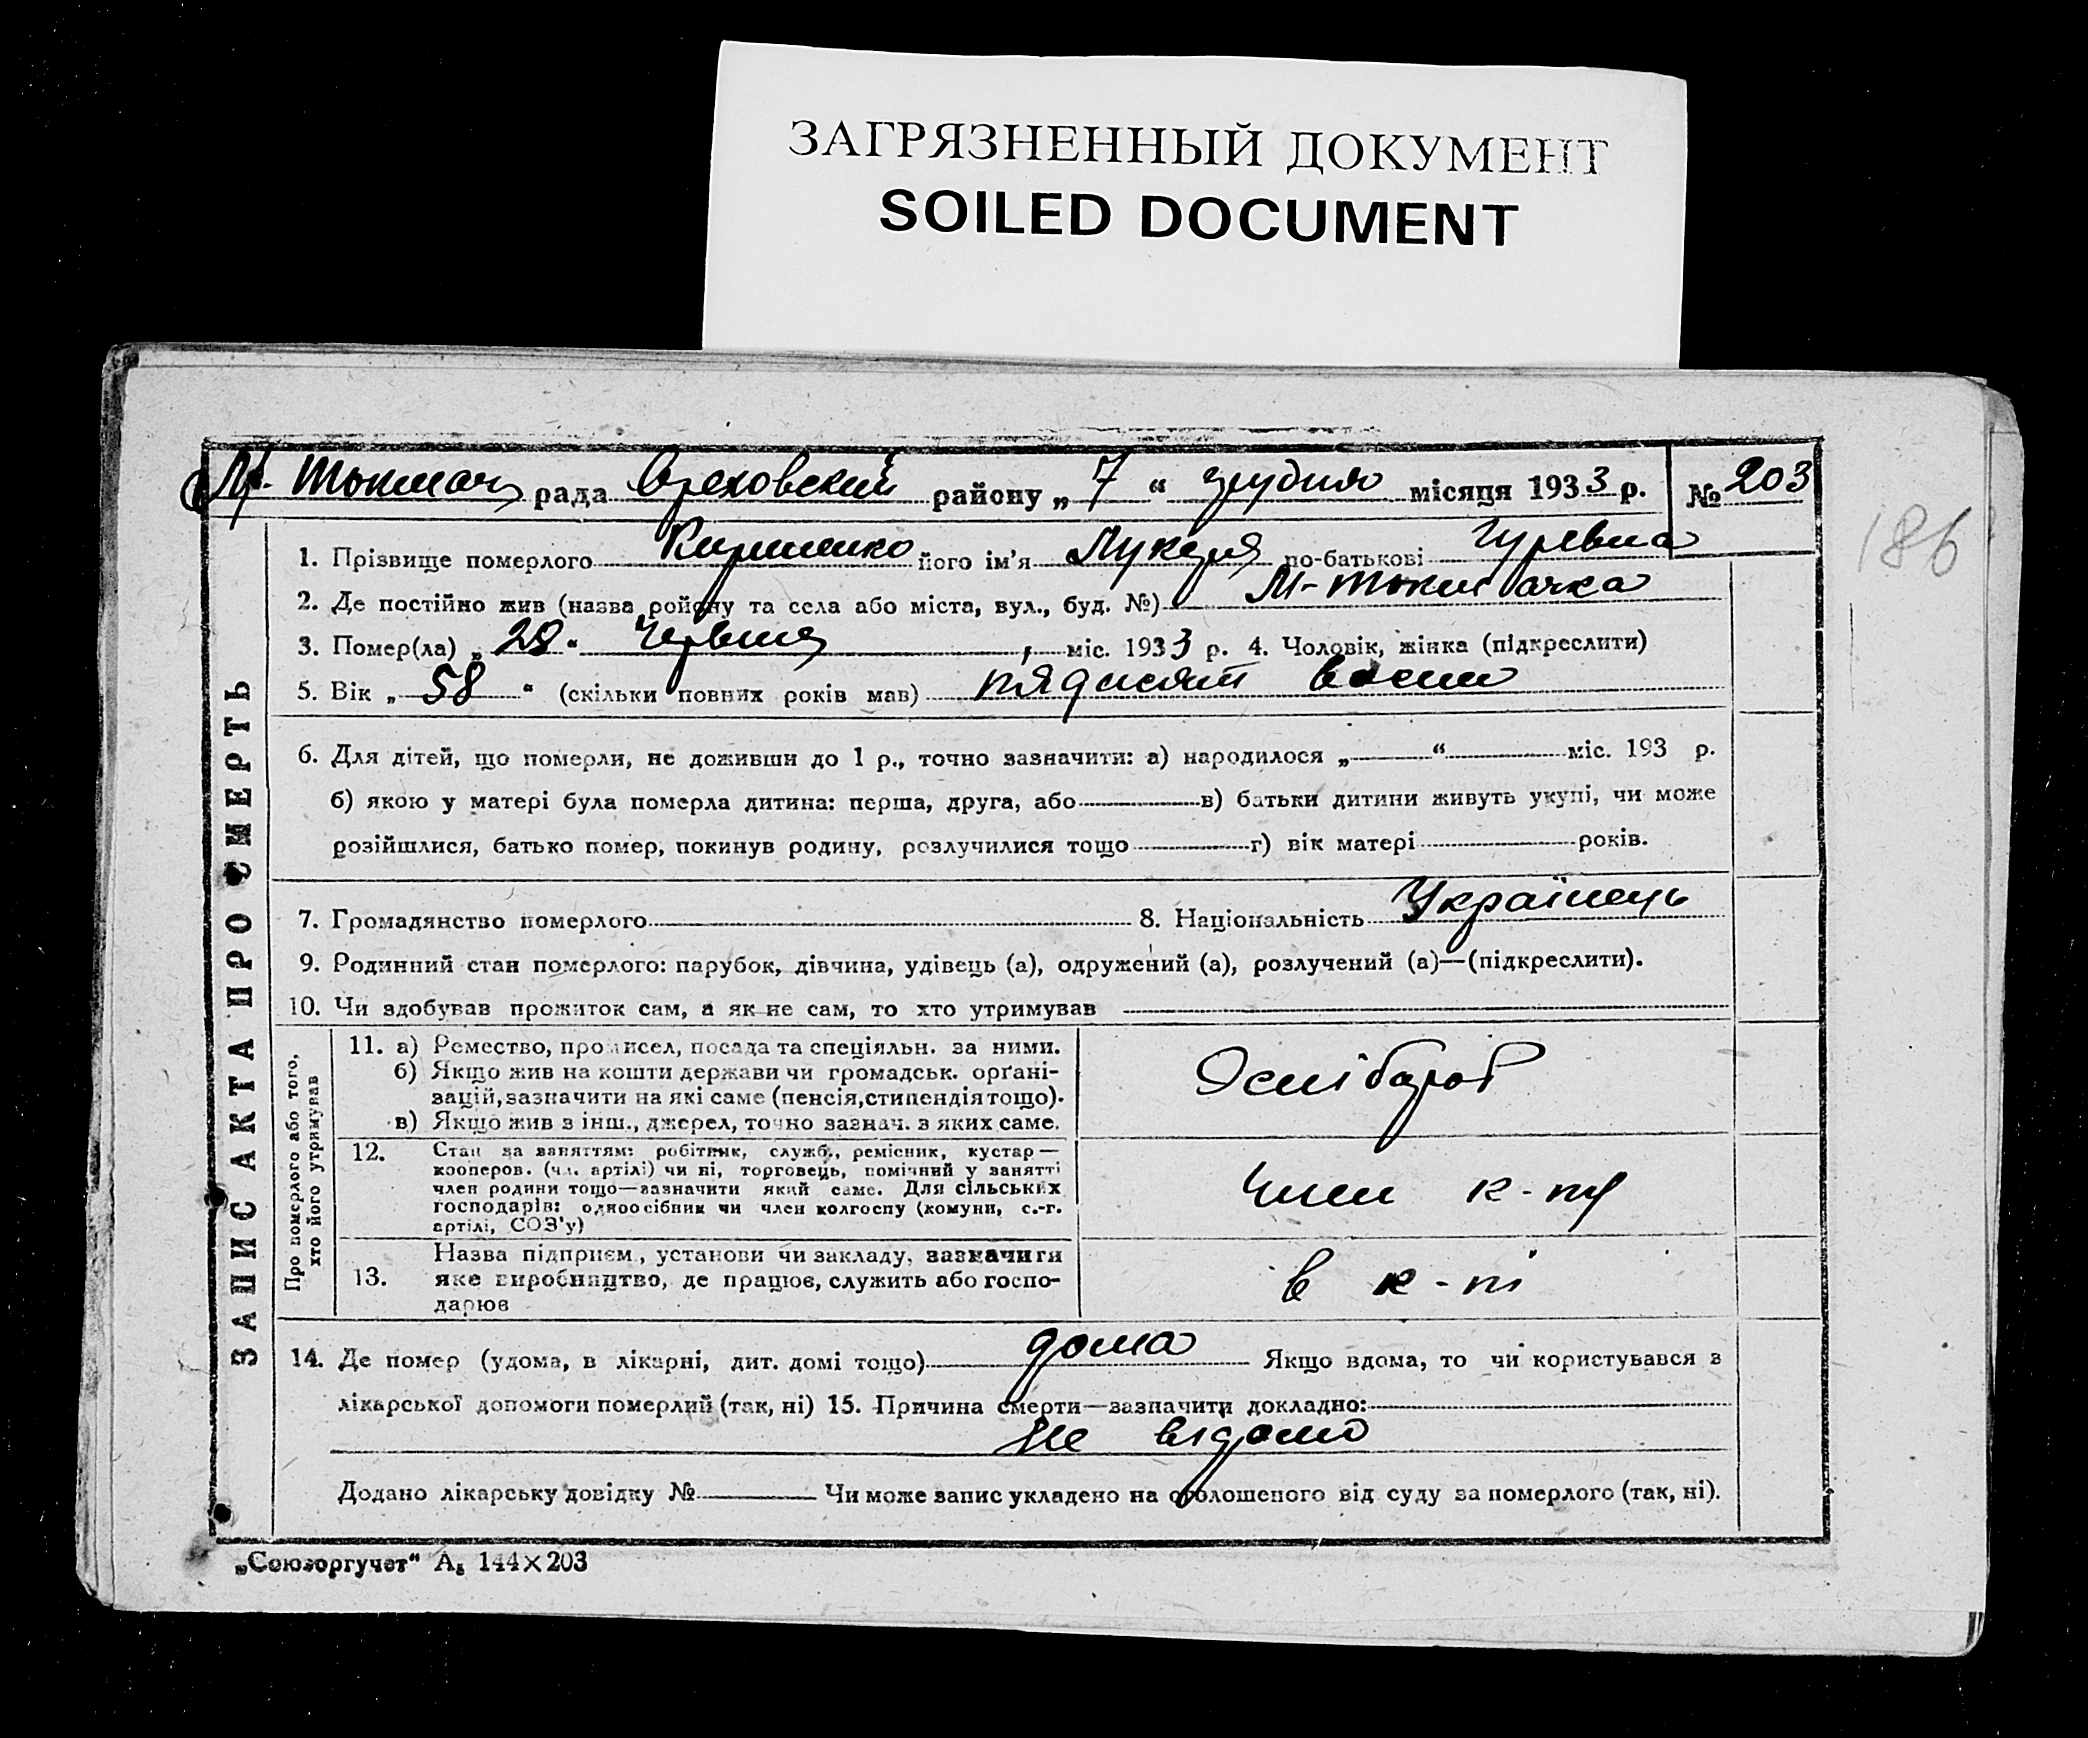 ЗАГРЯЗНЕННЫЙ ДОКУМЕНТ
SOILED DOCUMENT
М. Токмач рада Ореховский району „ 7 “ грудня місяця 1933 р. № 203
186
ЗАПИС АКТА ПРО СМЕРТЬ
1. Прізвище померлого його ім'я Лукеря по-батькові Гуревна
2. Де постійно жив (назва ройону та села або міста, вул., буд. №) М-Токмачка
3. Помер(ла) „ 28 “ Червня, міс. 1933 р. 4. Чоловік, жінка (підкреслити)
5. Вік „ 58 “ (скільки повних років мав) пядисят восим
6. Для дітей, що померли, не доживши до 1 р., точно зазначити: а) народилося „ “ міс. 193 р.
б) якою у матері була померла дитина: перша, друга, або в) батьки дитини живуть укупі, чи може
розійшлися, батько помер, покинув родину, розлучилися тощо г) вік матері років.
7. Громадянство померлого 8. Національність Українець
9. Родинний стан померлого: парубок, дівчина, удівець (а), одружений (а), розлучений (а)—(підкреслити).
10. Чи здобував прожиток сам, а як не сам, то хто утримував
Про померлого або того, хто його утримував
11. а) Ремество, промисел, посада та спеціяльн. за ними.
б) Якщо жив на кошти держави чи громадськ. орґані-
зацій, зазначити на які саме (пенсія, стипендія тощо).
в) Якщо жив з інш., джерел, точно зазнач. з яких саме.
12. Стан за заняттям: робітник, служб., ремісник, кустар—
кооперов. (чл. артілі) чи ні, торговець, помічний у занятті
член родини тощо—зазначити який саме. Для сільських
господарів: одноосібник чи член колгоспу (комуни, с.-г.
артілі, СОЗ'у)
член к-пу
13. Назва підприєм., установи чи закладу, зазначити
яке виробництво, де працює, служить або госпо-
дарює
в к-пі
14. Де помер (удома, в лікарні, дит. домі тощо) дома Якщо вдома, то чи користувався з
лікарської допомоги померлий (так, ні) 15. Причина смерти—зазначити докладно:
Не відомо
Додано лікарську довідку № Чи може запис укладено на оголошеного від суду за померлого (так, ні).
„Союзоргучет“ А5 144×203